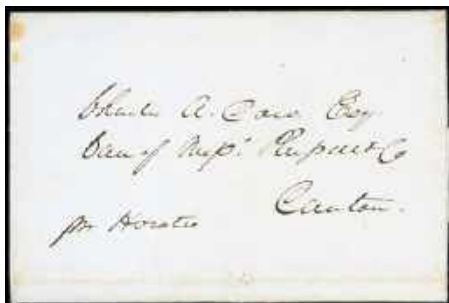 Charles A. Low Esq
Care of Messrs. Russell & Co
Canton.
pr Horatio